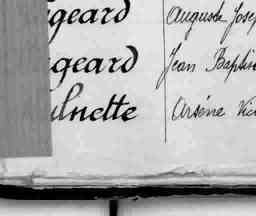 geard Auguste Josep
geard Jean Baptis
ulnette Arsène Vic